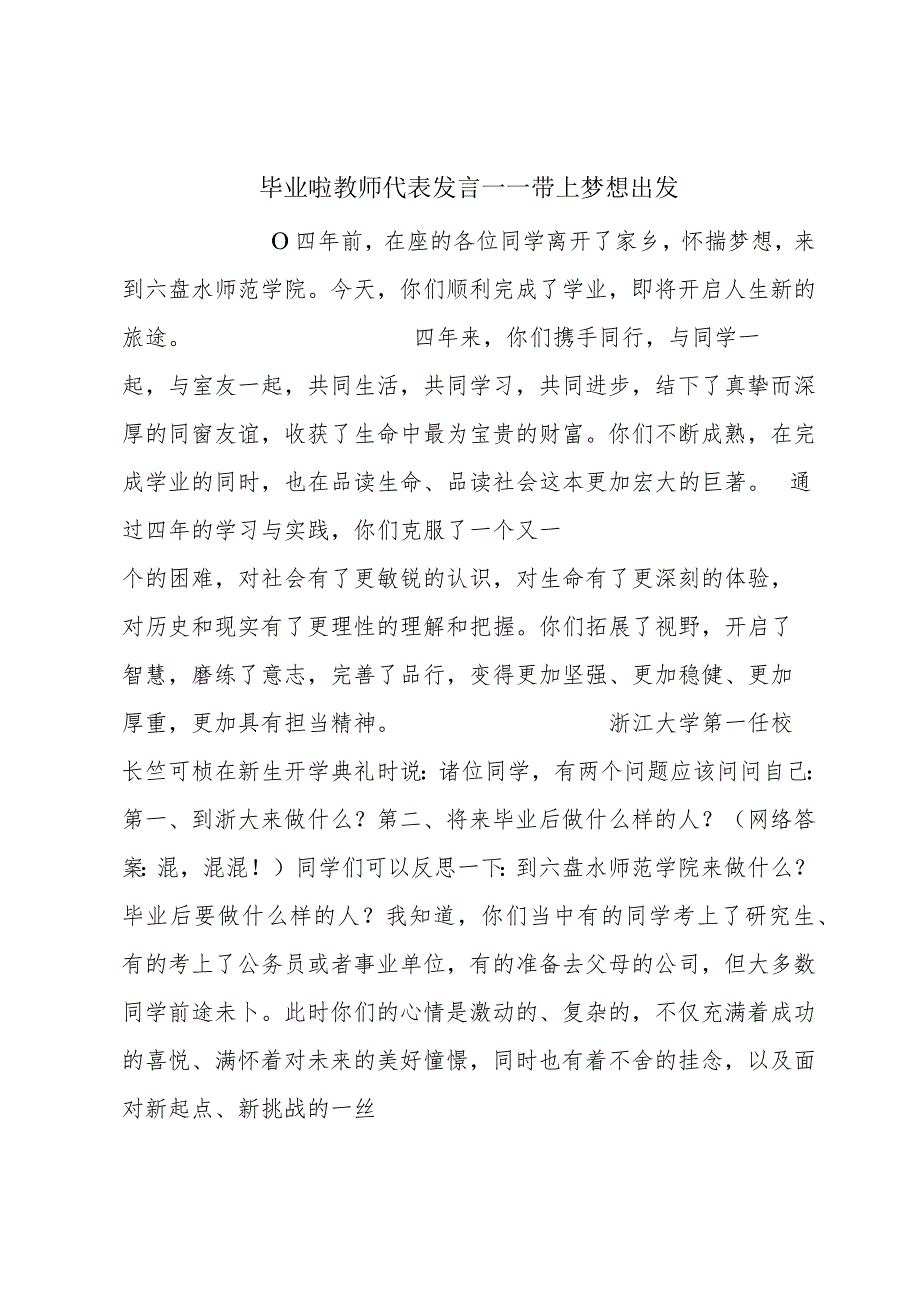 毕业啦教师代表发言一一带上梦想出发
O四年前，在座的各位同学离开了家乡，怀揣梦想，来
到六盘水师范学院。今天，你们顺利完成了学业，即将开启人生新的
旅途。 四年来，你们携手同行，与同学一
起，与室友一起，共同生活，共同学习，共同进步，结下了真挚而深
厚的同窗友谊，收获了生命中最为宝贵的财富。你们不断成熟，在完
成学业的同时，也在品读生命、品读社会这本更加宏大的巨著。 通
过四年的学习与实践，你们克服了一个又一
个的困难，对社会有了更敏锐的认识，对生命有了更深刻的体验，
对历史和现实有了更理性的理解和把握。你们拓展了视野，开启了
智慧，磨练了意志，完善了品行，变得更加坚强、更加稳健、更加
厚重，更加具有担当精神。 浙江大学第一任校
长竺可桢在新生开学典礼时说：诸位同学，有两个问题应该问问自己：
第一、到浙大来做什么？第二、将来毕业后做什么样的人？（网络答
案：混，混混！）同学们可以反思一下：到六盘水师范学院来做什么？
毕业后要做什么样的人？我知道，你们当中有的同学考上了研究生、
有的考上了公务员或者事业单位，有的准备去父母的公司，但大多数
同学前途未卜。此时你们的心情是激动的、复杂的，不仅充满着成功
的喜悦、满怀着对未来的美好憧憬，同时也有着不舍的挂念，以及面
对新起点、新挑战的一丝